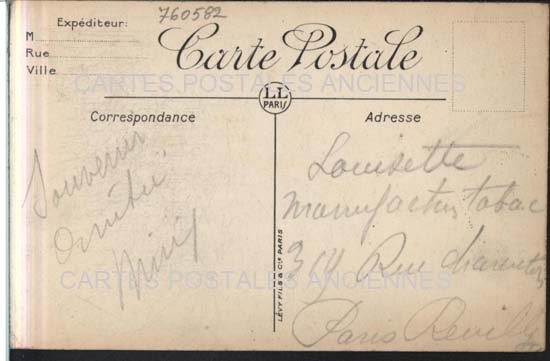 760582
Expéditeur:
M
Rue
Ville
Carte Postale
CARTES POSTALES ANCIENNES
LL
PARIS
Correspondance
Adresse
Souvenir
d'amitié
Mimi
LÉVY FILS & Cie PARIS
Louisette
Manufacture tabac
319 Rue Charenton
Paris Reuilly
CARTES POSTALES ANCIENNES